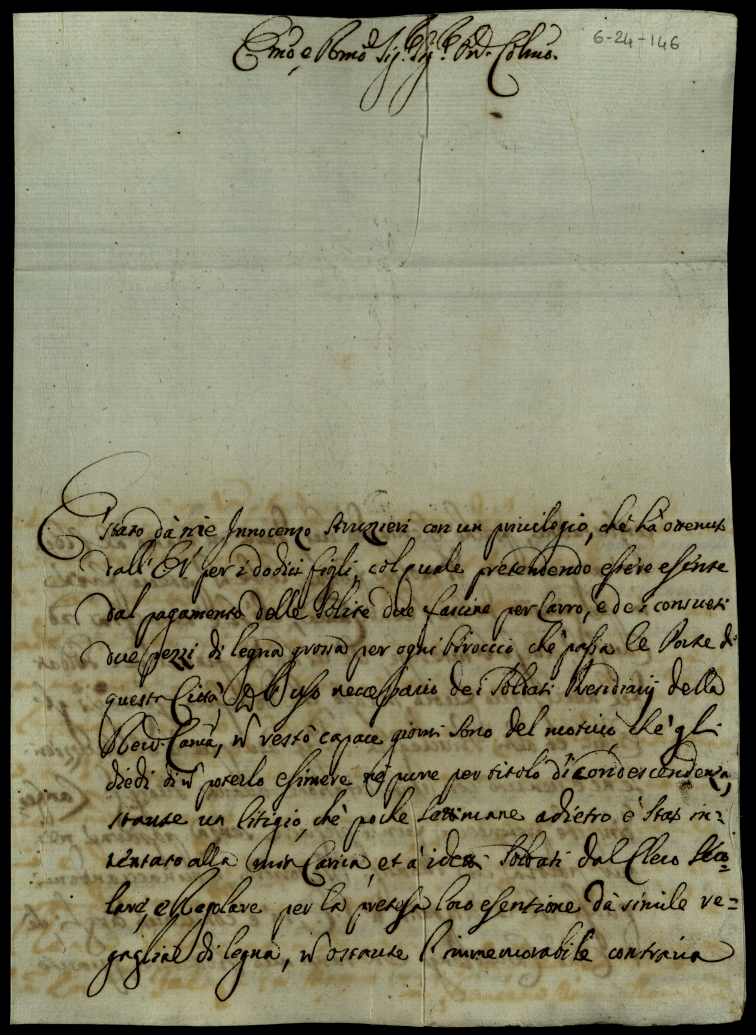 Emo, e Rmo Sig.r Sig.r Prõn Colmo.
6-24-146
È stato da me Innocenzo Struzzieri con un privilegio, che hà ottenuto
dall' per i dodici figli, col quale pretendendo essere esente
dal pagamento delle solite due fascine per Carro, e dei consueti
due pezzi di legna grossa per ogni biroccio che passa le Porte di
questa Città uso necessario dei Soldati Residenti della
Revda Camã, restò capace giorni sono del motivo che gli
diedi di poterlo esimere nè pure per titolo di condescendenza,
stante un litigio, che poche settimane adietro è stato in-
tentato alla mia Carica, et à i detti Soldati dal Clero Seco-
lare, e Regolare per la pretesa loro esentione dà simile re-
gaglia di legna, ostante l'immemorabile contraria